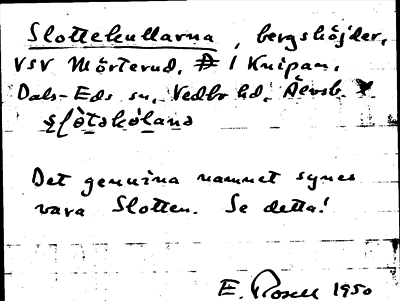 Slottekullarna, bergshöjder,
VSV Mörterud, i Knipan,
Dals-Eds sn, Vedbo hd, Älvsb.
Det genuina namnet synes
vara Slotten. Se detta!
E. Rosell 1950